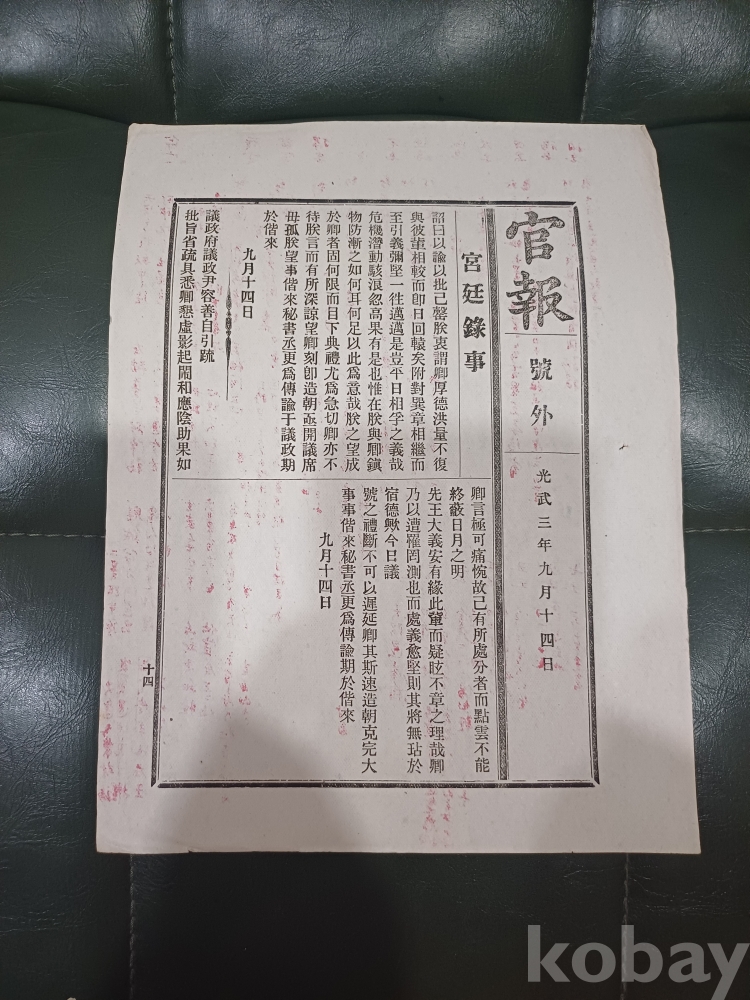 官報
號外
光武三年九月十四日
宮廷錄事
詔曰以諭以批己罄朕衷謂卿厚德洪量不復
與彼輩相較而卽日回轅矣附對巽章相繼而
至引義彌堅一徃邁邁是豈平日相孚之義哉
危機潛動駭淚忽高果有是也惟在朕與卿鎭
物防漸之如何耳何足以此爲意哉朕之望成
於卿者固何限而目下典禮尤爲急切卿亦不
待朕言而有所深諒望卿刻卽造朝亟開議席
毋孤朕望事偕來秘書丞更爲傳諭于議政期
於偕來
九月十四日
議政府議政尹容善自引疏
批旨省疏具悉卿懇虛影起鬧和應陰助果如
卿言極可痛惋故己有所處分者而點雲不能
終蔽日月之明
先王大義安有緣此輩而疑眩不章之理哉卿
乃以遭罹罔測也而處義愈堅則其將無玷於
宿德歟今日議
號之禮斷不可以遲延卿其斯速造朝克完大
事事偕來秘書丞更爲傳諭期於偕來
九月十四日
十四
kobay